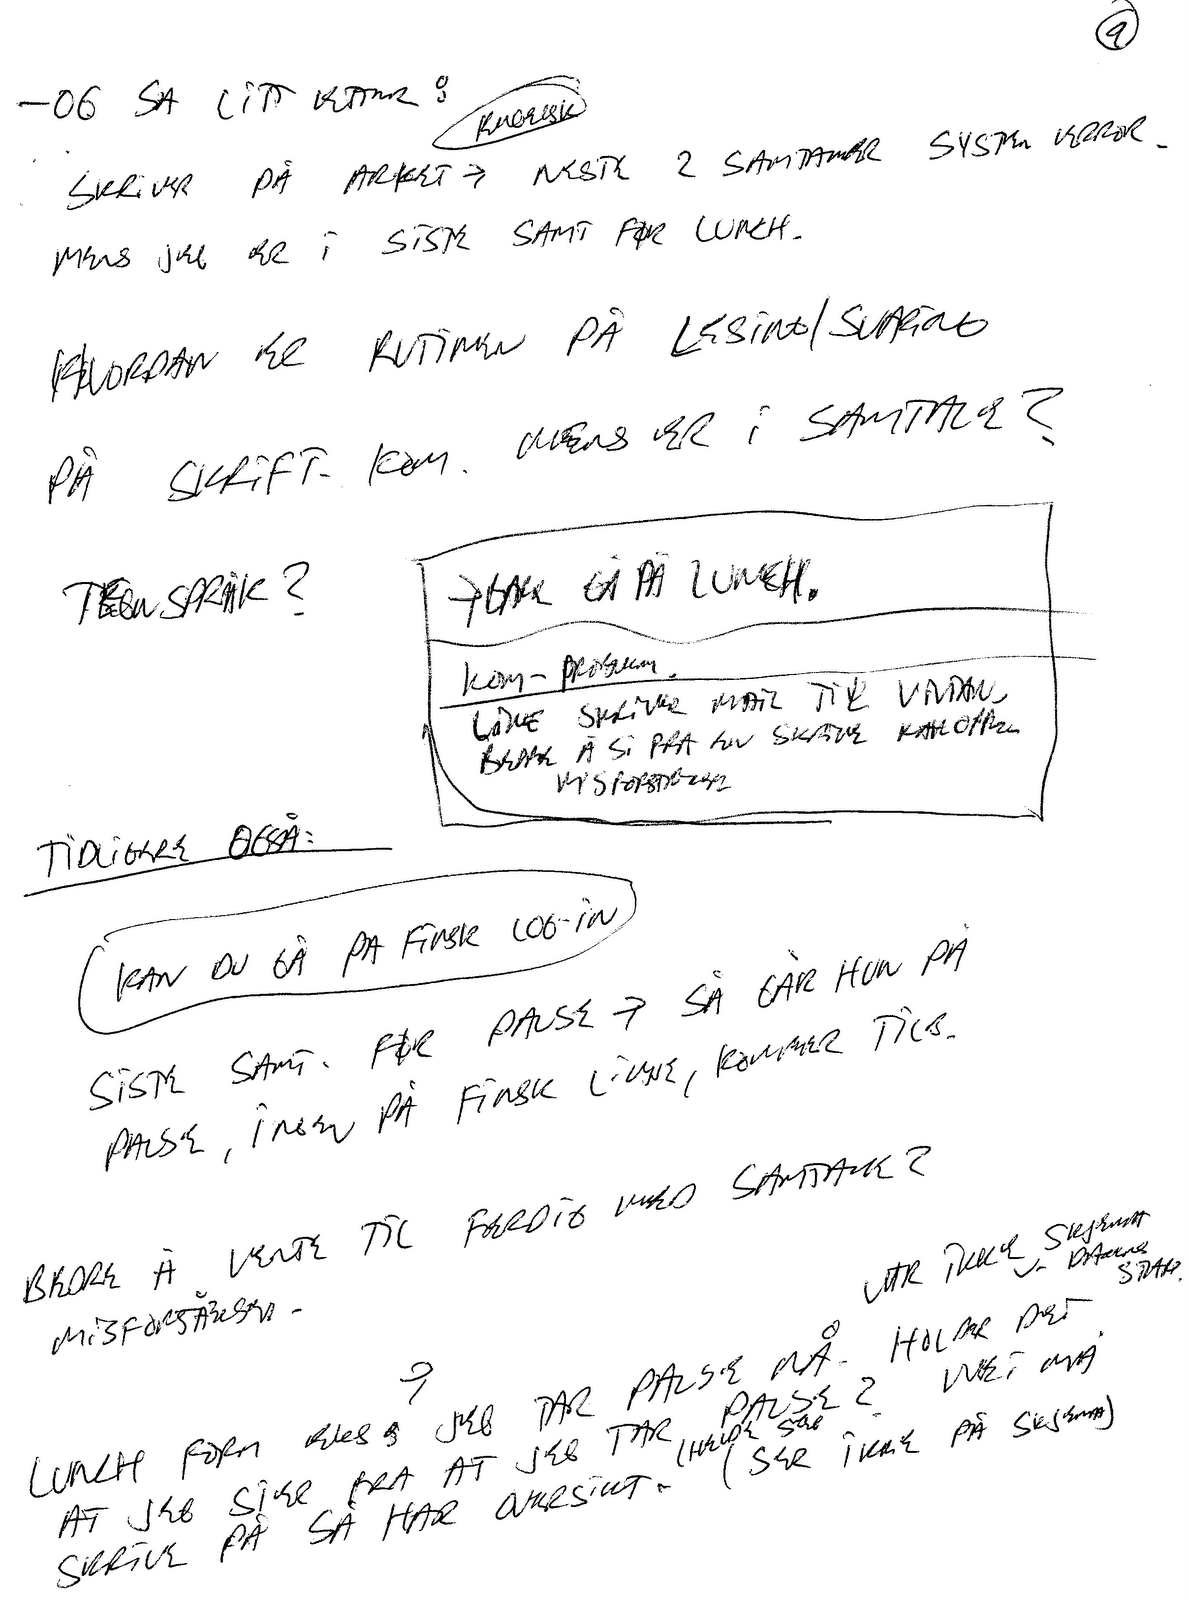 9
-06 SA LITT
SKRIVER PÅ ARKET → NESTE 2 SAMTALER SYSTEM ERROR.
MENS JEG ER I SISTE SAMT FØR LUNCH.
HVORDAN ER RUTINEN PÅ LESING/SVARING
PÅ SKRIFT. KOM. MENS ER I SAMTALE?
TEGNSPRÅK?
→ BARE GÅ PÅ LUNCH.
KOM-PROBLEM.
LINE SKRIVER MAIL TIL VIVIAN.
BEDRE Å SI FRA ENN SKRIVE
MISFORSTÅELSER
TIDLIGERE OGSÅ:
KAN DU GÅ PÅ FINSK LOG-IN
SISTE SAMT. FØR PAUSE → SÅ GÅR HUN PÅ
PAUSE, INGEN PÅ FINSK LINNE, KOMMER TILB.
BEDRE Å VENTE TIL FERDIG MED SAMTALE?
MISFORSTÅELSER.
VAR IKKE SKJEMA
STAR.
?
LUNCH FORM JEG TAR PAUSE NÅ. HOLDER DET
AT JEG SIER FRA AT JEG TAR PAUSE? VET MÅ
SKRIVE PÅ SÅ HAR OVERSIKT. (SER IKKE PÅ SKJEMA)